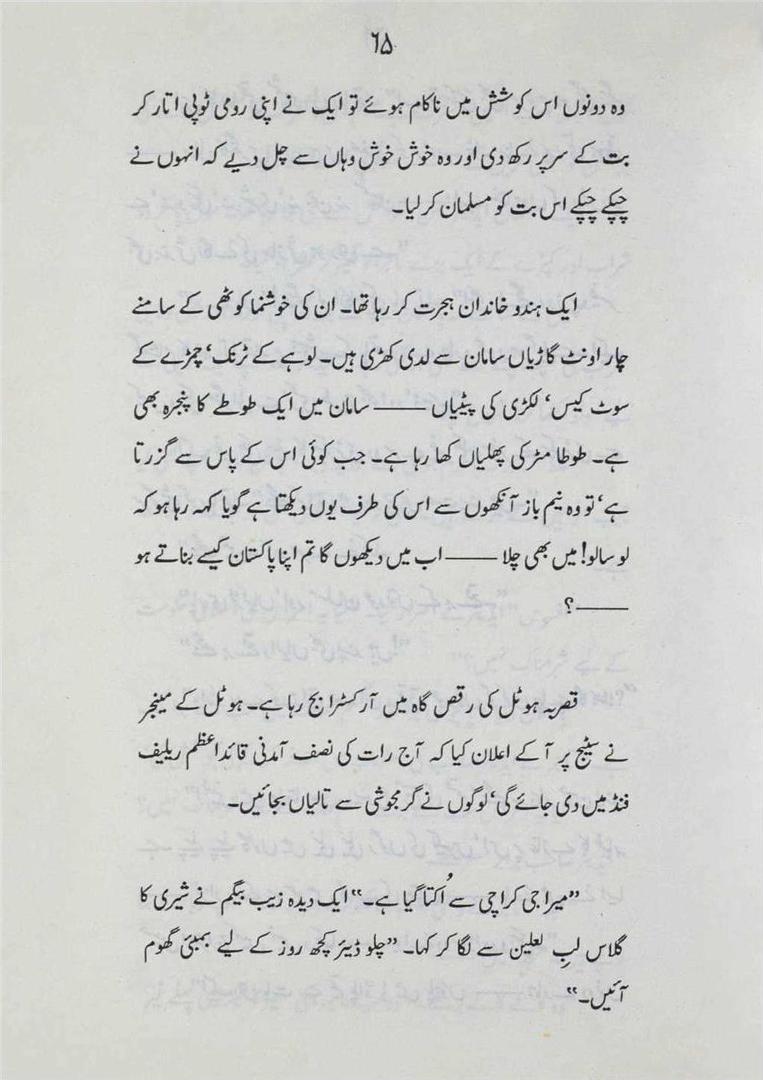 ۶۵
وہ دونوں اس کوشش میں ناکام ہوئے تو ایک نے اپنی رومی ٹوپی اتار کر
بت کے سر پر رکھ دی اور وہ خوش خوش وہاں سے چل دیے کہ انہوں نے
چپکے چپکے اس بت کو مسلمان کر لیا۔
ایک ہندو خاندان ہجرت کر رہا تھا۔ ان کی خوشنما کوٹھی کے سامنے
چار اونٹ گاڑیاں سامان سے لدی کھڑی ہیں۔ لوہے کے ٹرنک، چمڑے کے
سوٹ کیس، لکڑی کی پیٹیاں ——— سامان میں ایک طوطے کا پنجرہ بھی
ہے۔ طوطا مٹر کی پھلیاں کھا رہا ہے۔ جب کوئی اس کے پاس سے گزرتا
ہے، تو وہ نیم باز آنکھوں سے اس کی طرف یوں دیکھتا ہے گویا کہہ رہا ہو کہ
لو سالو! میں بھی چلا ——— اب میں دیکھوں گا تم اپنا پاکستان کیسے بناتے ہو
———؟
قصربہ ہوٹل کی رقص گاہ میں آرکسٹرا بج رہا ہے۔ ہوٹل کے مینجر
نے سٹیج پر آ کے اعلان کیا کہ آج رات کی نصف آمدنی قائداعظم ریلیف
فنڈ میں دی جائے گی، لوگوں نے گرمجوشی سے تالیاں بجائیں۔
”میرا جی کراچی سے اُکتا گیا ہے۔“ ایک دیدہ زیب بیگم نے شیری کا
گلاس لبِ لعلین سے لگا کر کہا۔ ”چلو ڈیئر کچھ روز کے لیے بمبئی گھوم
آئیں۔“